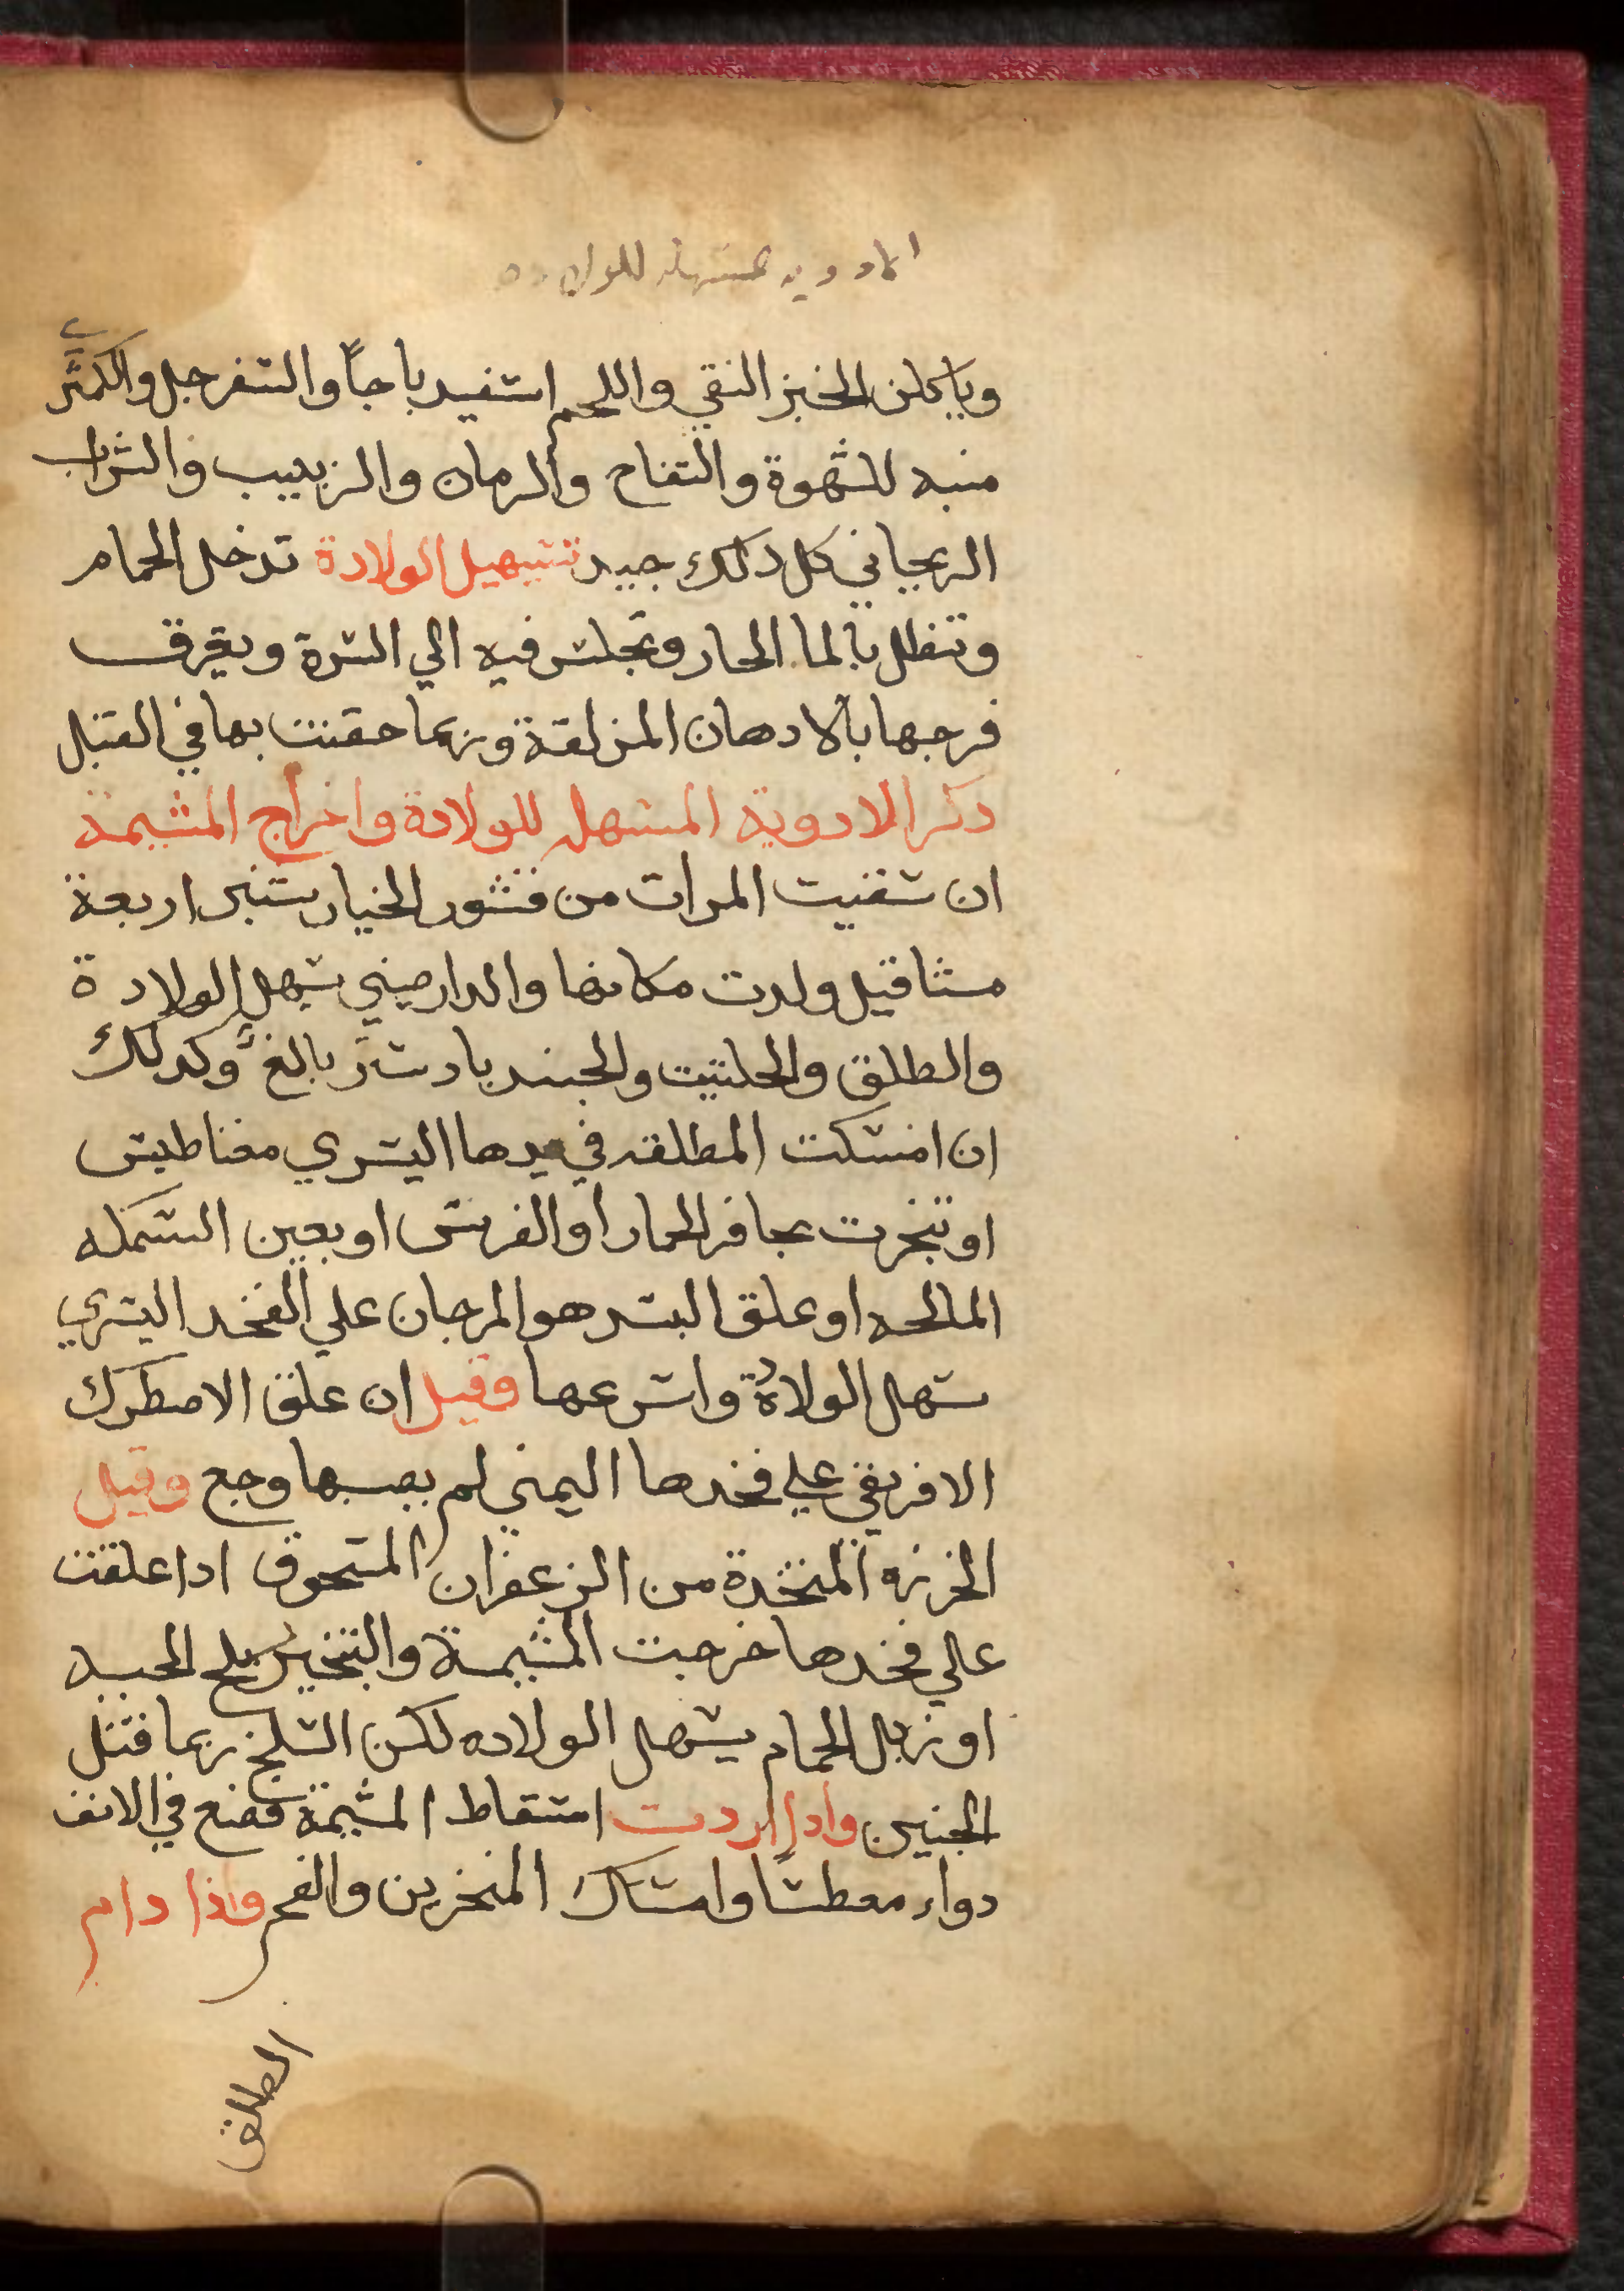 الادويه المسهله للولاده
وياكلن الخبز النقي واللحم اسفيدباجاً والسفرجل والكمثري
منبه للشهوة والتفاح والرمان والزبيب والشراب
الريحاني كل ذلك جيد تسهيل الولادة تدخل الحمام
وتنطل بالما الحار وتجلس فيه الي السرة ويمرق
فرجها بالادهان المزلقة وربما حقنت بها في القبل
ذكر الادوية المسهله للولادة واخراج المشيمة
ان سقيت المراة من قشور الخيار شنبر اربعة
مثاقيل ولدت مكانها والدارصيني يسهل الولادة
والطلق والحلتيت والجندبادستر بالغ وكذلك
ان امسكت المطلقه في يدها اليسري مغناطيس
او تبخرت بحافر الحمار او الفرس او بعين السمكه
المالحه او علق البسد هو المرجان علي الفخد اليسري
سهل الولادة واسرعها وقيل ان علق الاصطرك
الافريقي علي فخدها اليمني لم يصبها وجع وقيل
الخرزه المتخذة من الزعفران المسحوق ادا علقت
علي فخدها خرجت المشيمة والتبخير بسلخ الحيه
او زبل الحمام يسهل الولاده لكن السلخ ربما قتل
الجنين وادا اردت اسقاط المشيمة فضع في الانف
دواء معطسًا وامساك المنخرين والفم واذا دام
الطلق